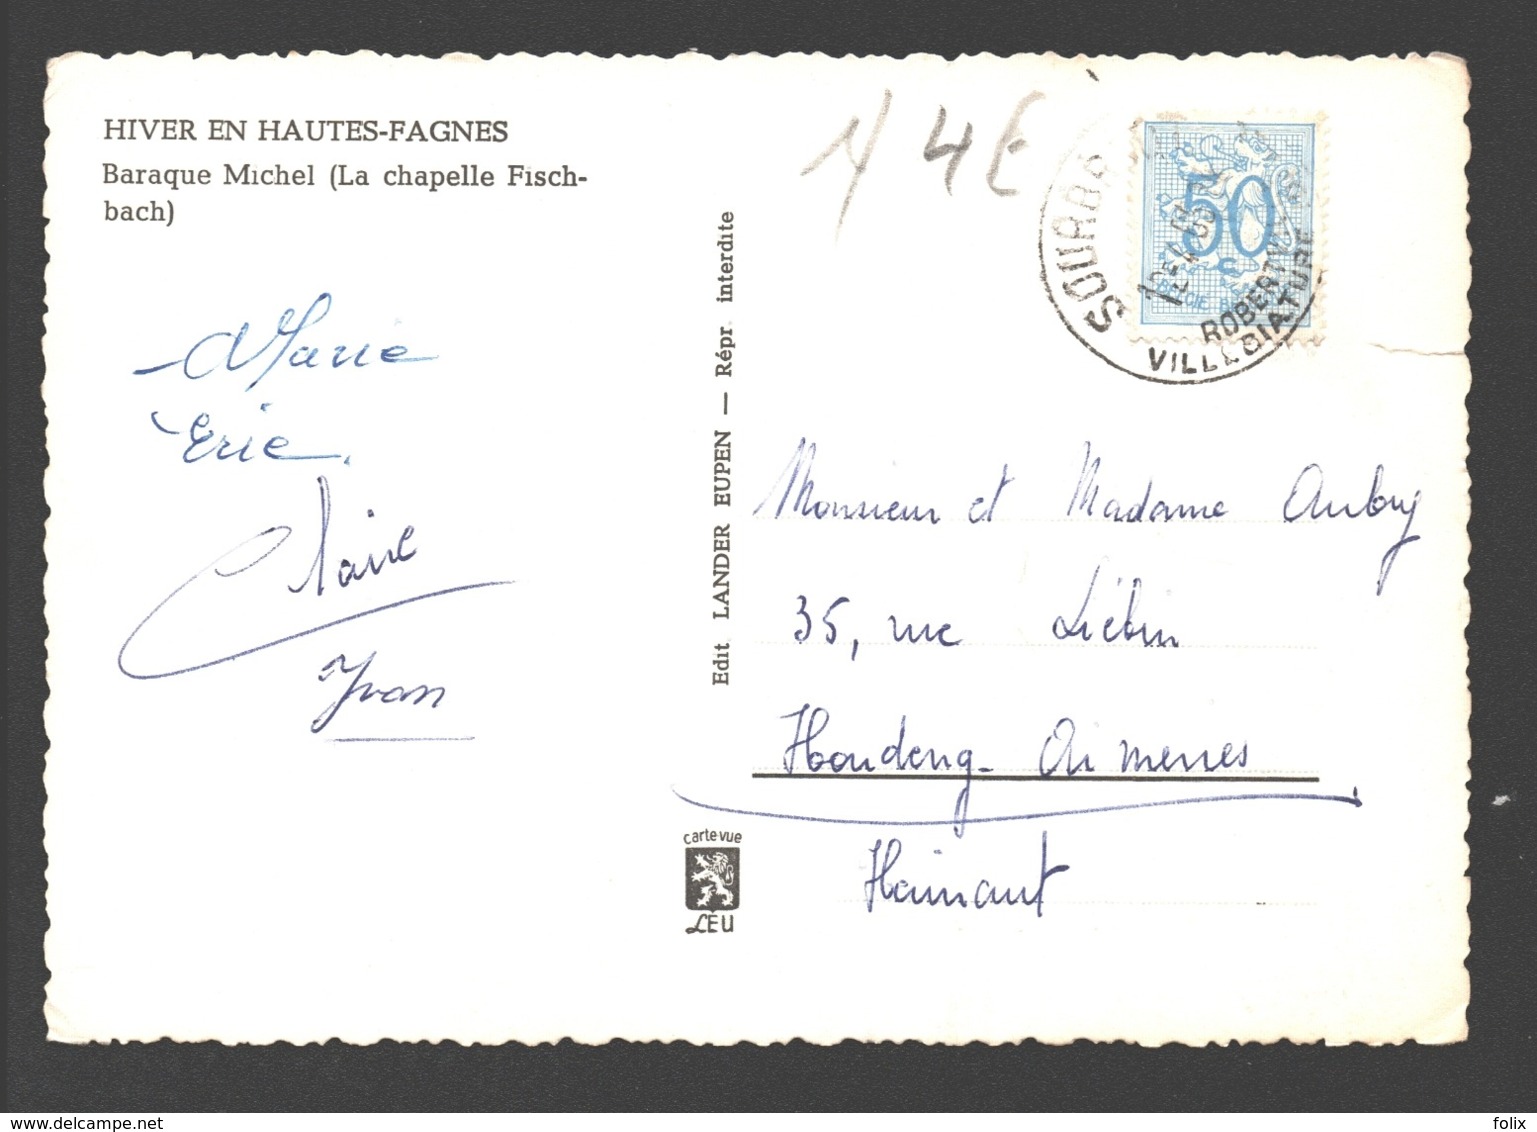 HIVER EN HAUTES-FAGNES
Baraque Michel (La chapelle Fisch-
bach)
Marie
Eric.
Claire
Yvan
Edit. LANDER EUPEN — Répr. interdite
carte vue
LEU
4€
50
c
BELGIE
ROBERTVILLE
VILLEGIATURE
Monsieur et Madame Aubry
35, rue Liébin
Houdeng-Aimeries
Hainaut
www.delcampe.net
folix